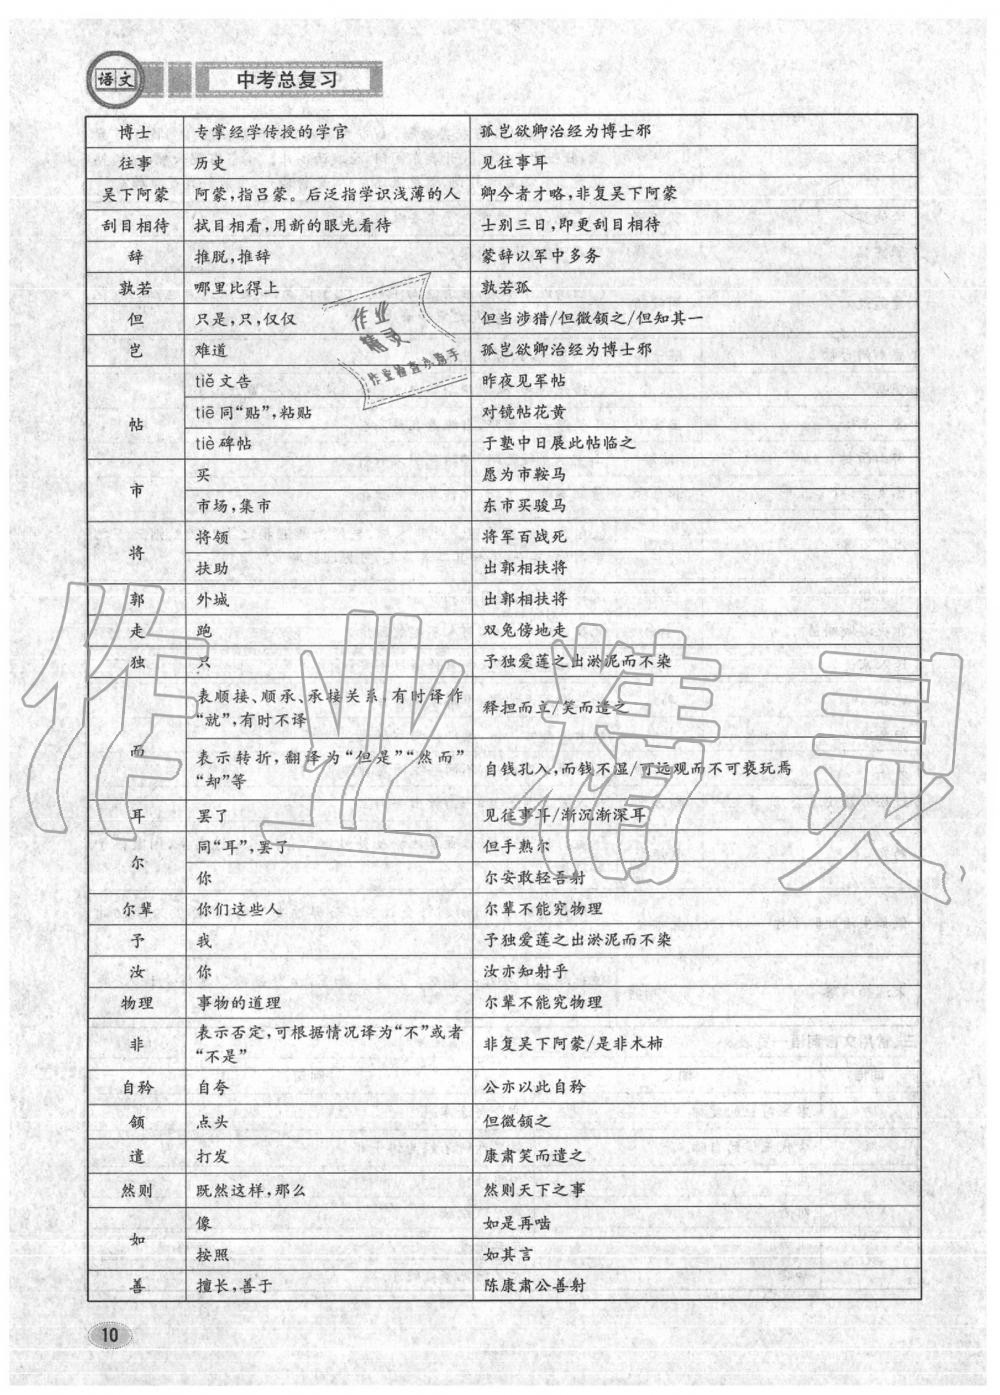 语文
中考总复习
博士 专掌经学传授的学官 孤岂欲卿治经为博士邪
往事 历史 见往事耳
吴下阿蒙 阿蒙,指吕蒙。后泛指学识浅薄的人 卿今者才略,非复吴下阿蒙
刮目相待 拭目相看,用新的眼光看待 士别三日,即更刮目相待
辞 推脱,推辞 蒙辞以军中多务
孰若 哪里比得上 孰若孤
但 只是,只,仅仅 但当涉猎/但微颔之/但知其一
岂 难道 孤岂欲卿治经为博士邪
帖 tiě文告 昨夜见军帖
tiē同“贴”,粘贴 对镜帖花黄
tiè碑帖 于塾中日展此帖临之
市 买 愿为市鞍马
市场,集市 东市买骏马
将 将领 将军百战死
扶助 出郭相扶将
郭 外城 出郭相扶将
走 跑 双兔傍地走
独 只 予独爱莲之出淤泥而不染
而 表顺接、顺承、承接关系,有时译作
“就”,有时不译 释担而立/笑而遣之
表示转折,翻译为“但是”“然而”
“却”等 自钱孔入,而钱不湿/可远观而不可亵玩焉
耳 罢了 见往事耳/渐沉渐深耳
尔 同“耳”,罢了 但手熟尔
你 尔安敢轻吾射
尔辈 你们这些人 尔辈不能究物理
予 我 予独爱莲之出淤泥而不染
汝 你 汝亦知射乎
物理 事物的道理 尔辈不能究物理
非 表示否定,可根据情况译为“不”或者
“不是” 非复吴下阿蒙/是非木杮
自矜 自夸 公亦以此自矜
颔 点头 但微颔之
遣 打发 康肃笑而遣之
然则 既然这样,那么 然则天下之事
如 像 如是再啮
按照 如其言
善 擅长,善于 陈康肃公善射
10
作业精灵
作业
精灵
作业检查小助手